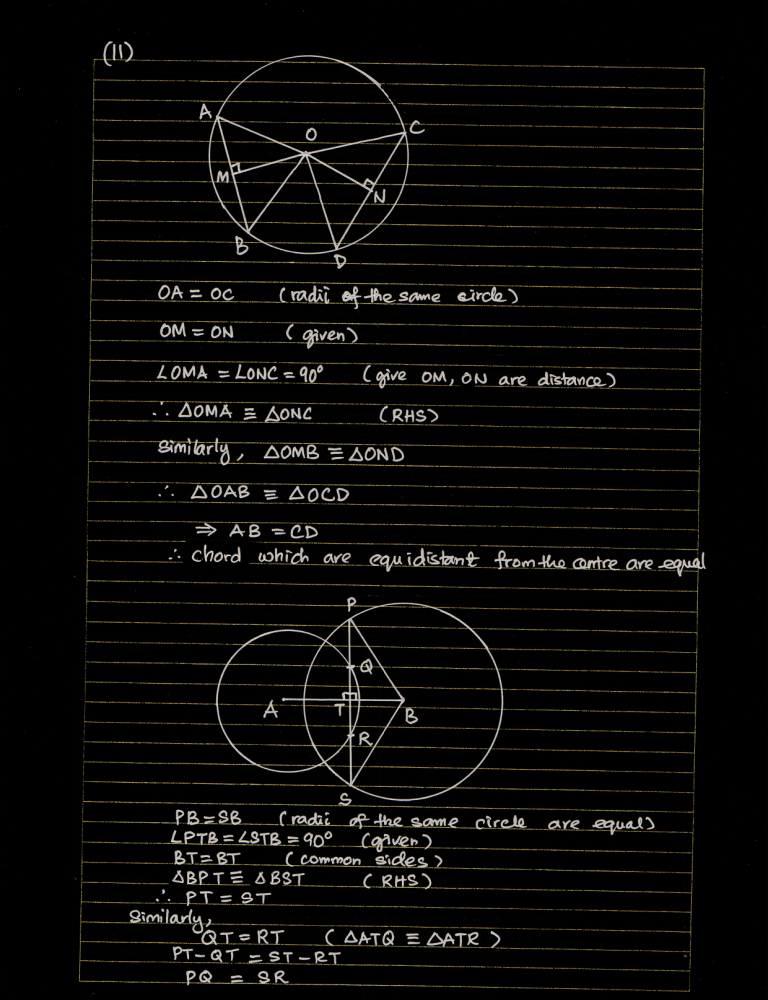 (11)
A
O
C
M
N
B
D
OA = OC (radii of the same circle)
OM = ON (given)
∠OMA = ∠ONC = 90° (give OM, ON are distance)
∴ △OMA ≡ △ONC (RHS)
Similarly, △OMB ≡ △OND
∴ △OAB ≡ △OCD
⇒ AB = CD
∴ chord which are equidistant from the centre are equal
P
Q
A
T
B
R
S
PB = SB (radii of the same circle are equal)
∠PTB = ∠STB = 90° (given)
BT = BT (common sides)
△BPT ≡ △BST (RHS)
∴ PT = ST
Similarly,
QT = RT (△ATQ ≡ △ATR)
PT - QT = ST - RT
PQ = SR